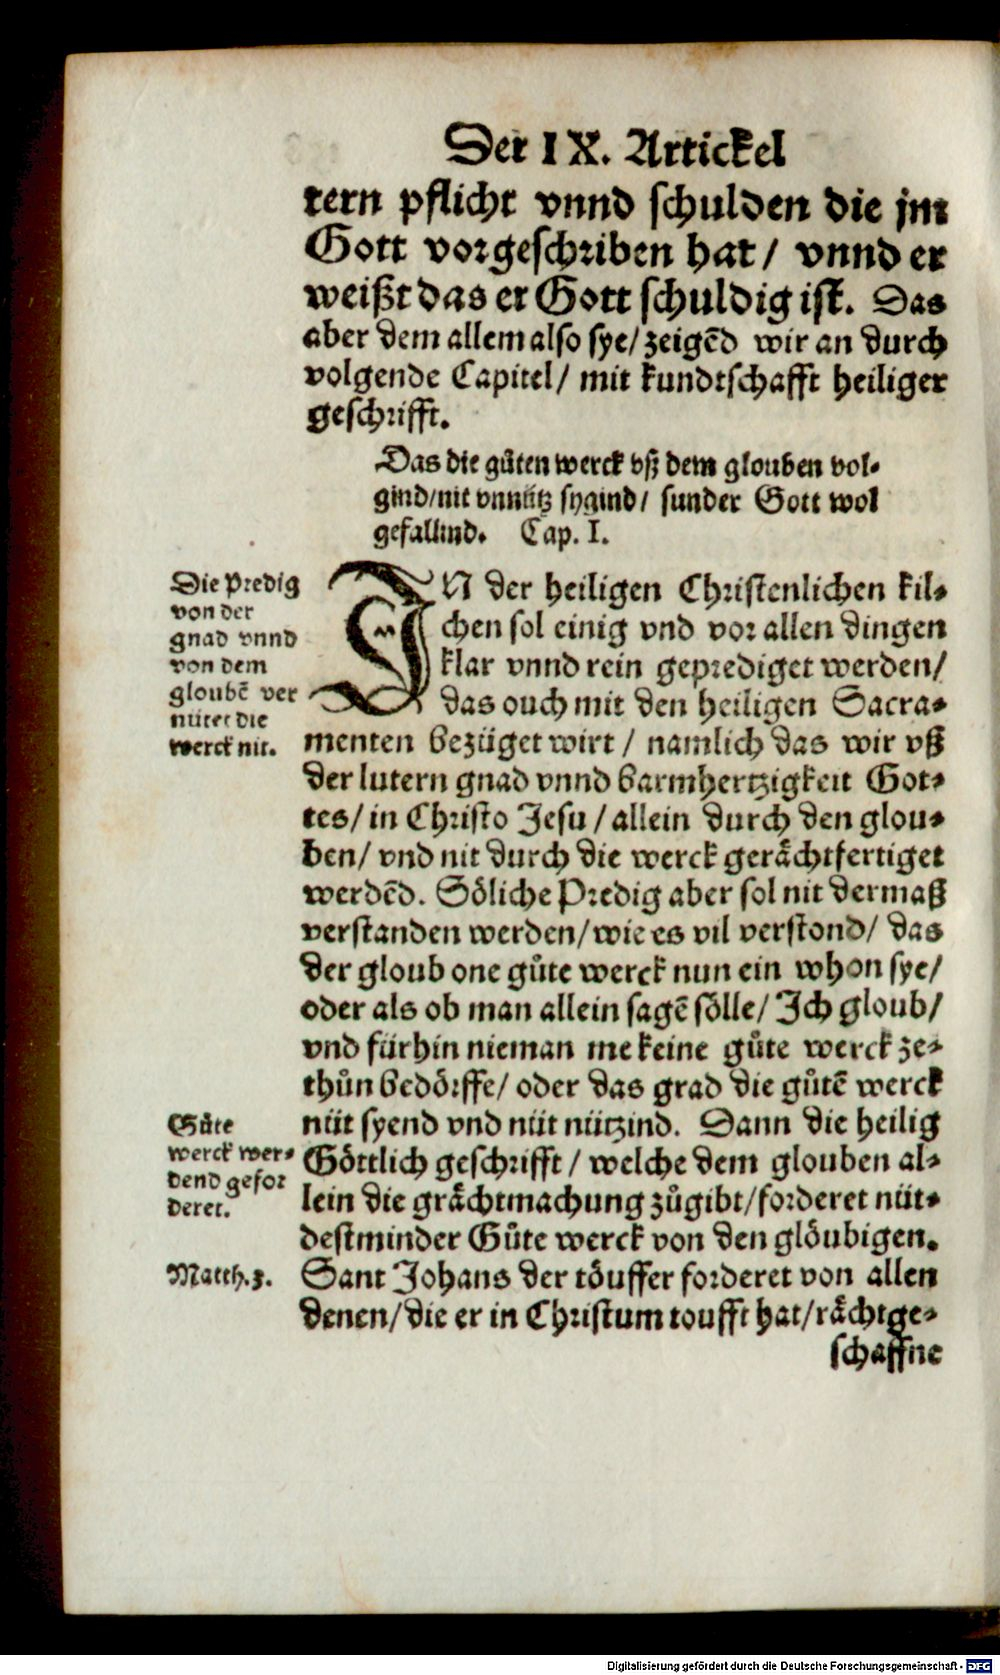 Der IX. Artickel
tern pflicht vnnd schulden die jm
Gott vorgeschriben hat / vnnd er
weißt das er Gott schuldig ist. Das
aber dem allem also sye / zeigẽd wir an durch
volgende Capitel / mit kundtschafft heiliger
geschrifft.
Das die gůten werck vß dem glouben vol-
gind / nit vnnütz sygind / sunder Gott wol
gefallind. Cap. I.
Die Predig
von der
gnad vnnd
von dem
gloubẽ ver
nütet die
werck nit.
IN der heiligen Christenlichen kil-
chen sol einig vnd vor allen dingen
klar vnnd rein geprediget werden /
das ouch mit den heiligen Sacra-
menten bezüget wirt / namlich das wir vß
der lutern gnad vnnd barmhertzigkeit Got-
tes / in Christo Jesu / allein durch den glou-
ben / vnd nit durch die werck geraͤchtfertiget
werdẽd. Soͤliche Predig aber sol nit dermaß
verstanden werden / wie es vil verstond / das
der gloub one gůte werck nun ein whon sye /
oder als ob man allein sagẽ soͤlle / Ich gloub /
vnd fürhin nieman me keine gůte werck ze-
thůn bedoͤrffe / oder das grad die gůtẽ werck
nüt syend vnd nüt nützind. Dann die heilig
Goͤttlich geschrifft / welche dem glouben al-
lein die graͤchtmachung zůgibt / forderet nüt-
destminder Gůte werck von den gloͤubigen.
Gůte
werck wer-
dend gefor
deret.
Matth. 3.
Sant Johans der toͤuffer forderet von allen
denen / die er in Christum toufft hat / raͤchtge-
schaffne
Digitalisierung gefördert durch die Deutsche Forschungsgemeinschaft - DFG